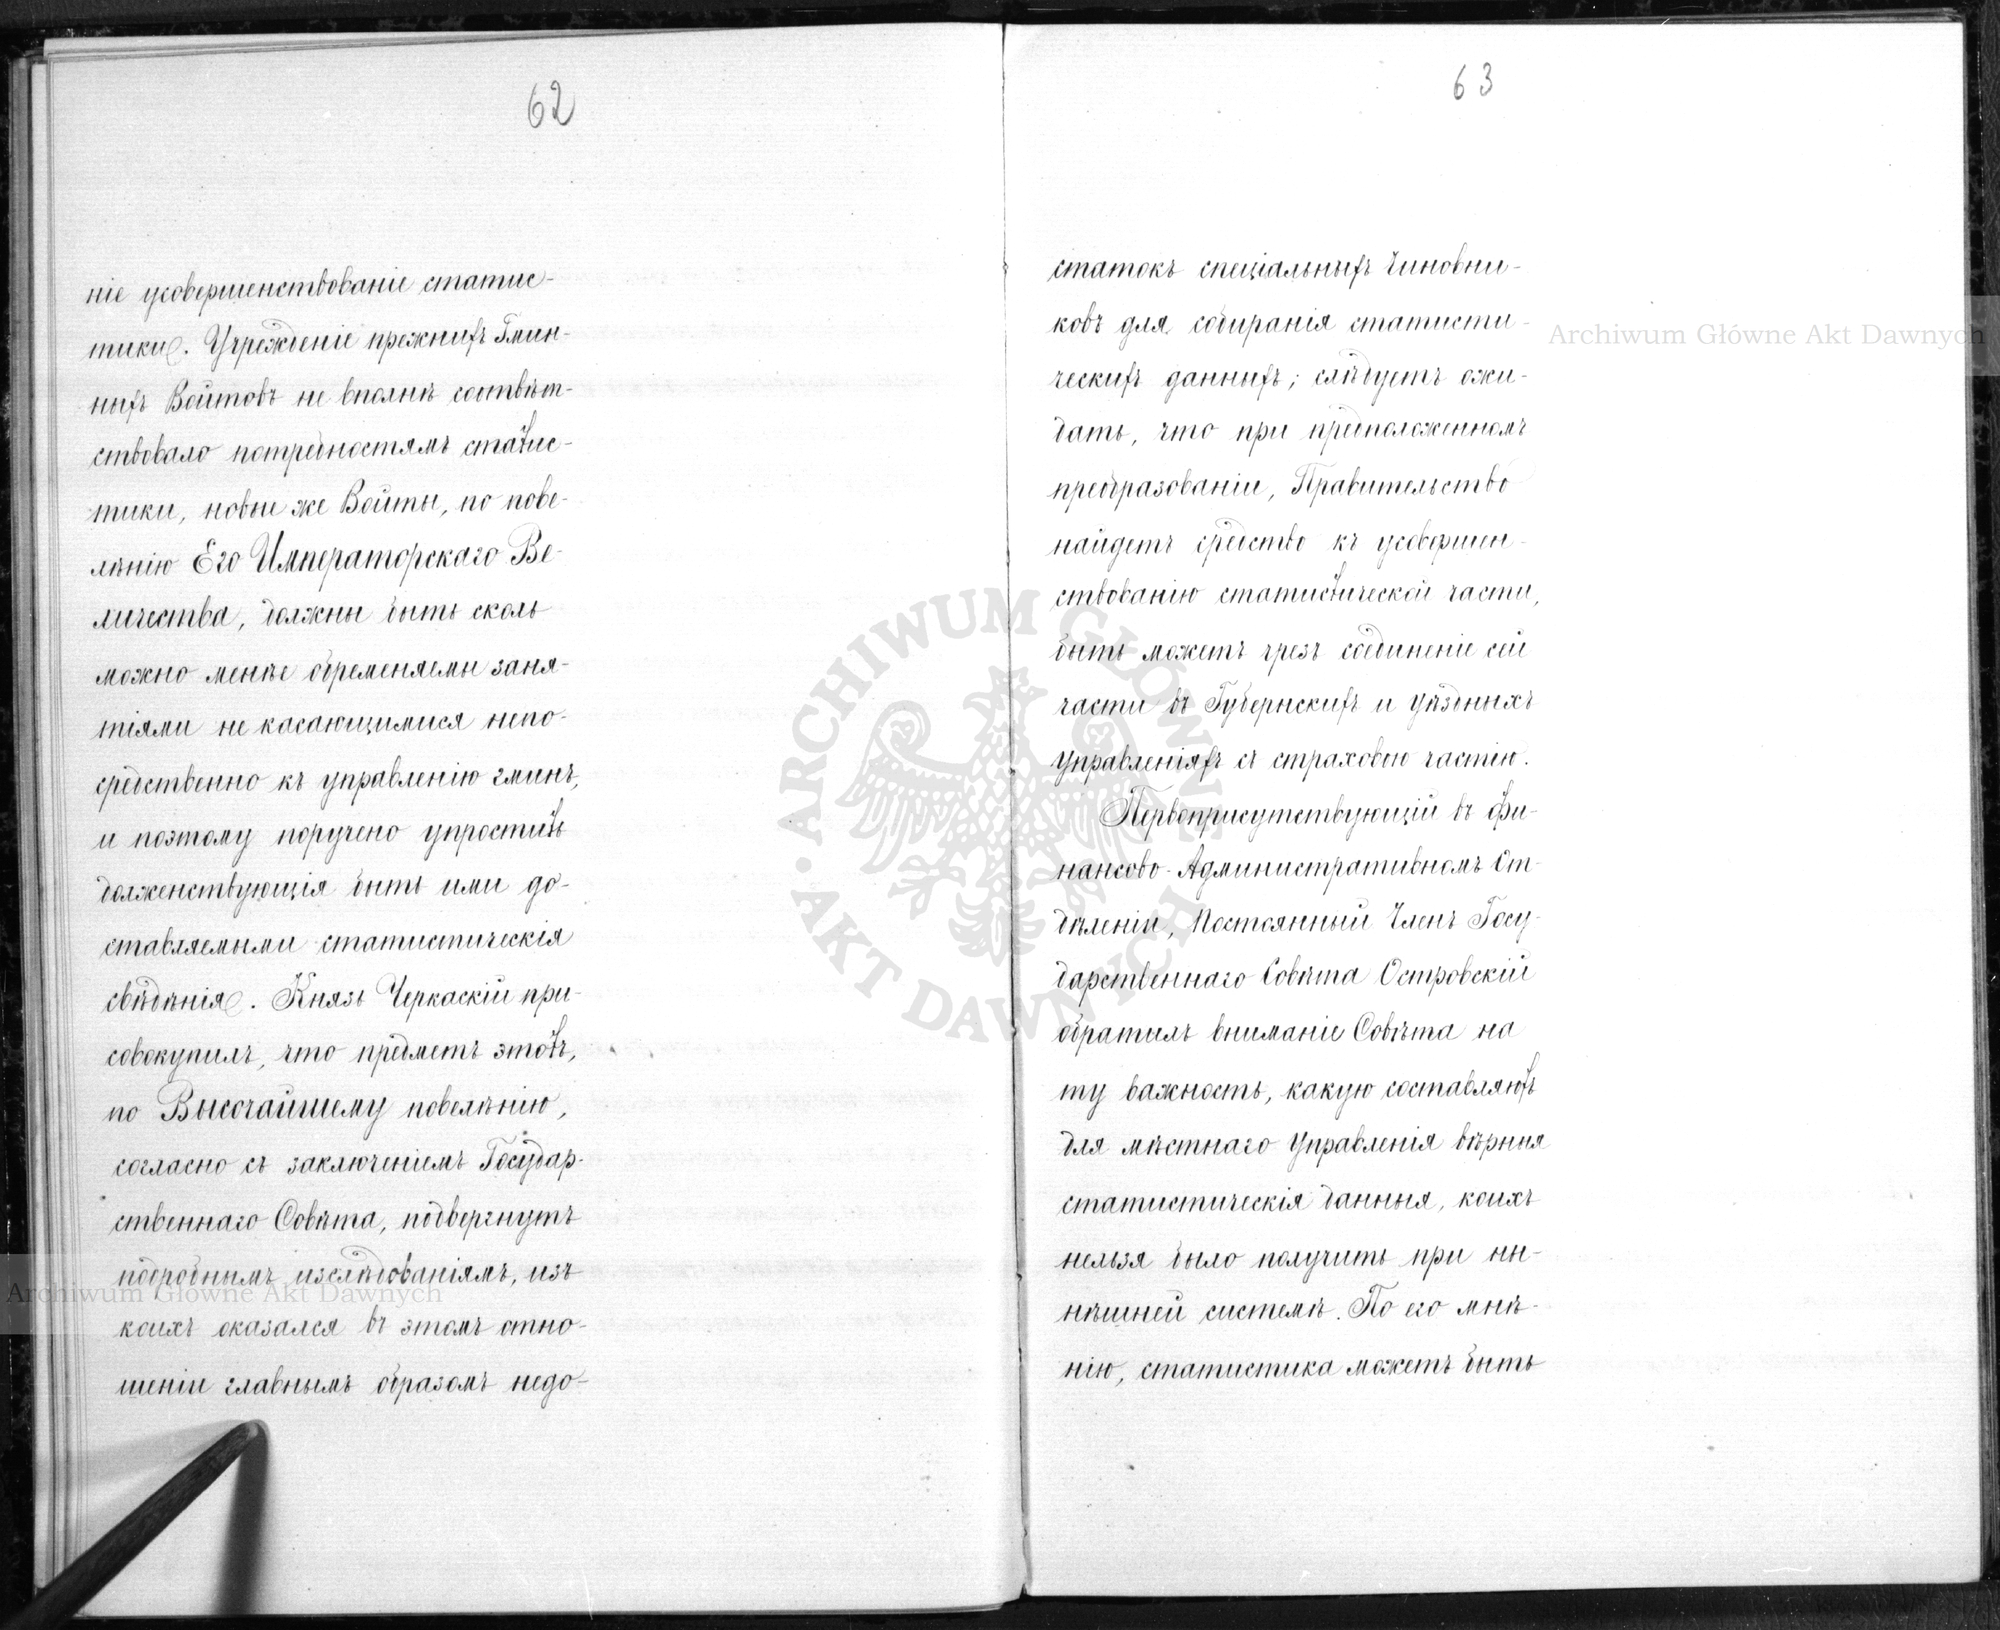 62
ніе усовершенствованіе статис-
тики. Учрежденіе прежнихъ Гмин-
ныхъ Войтовъ не вполнѣ соотвѣт-
ствовало потребностямъ статис-
тики, новые же Войты, по пове-
лѣнію Его Императорскаго Ве-
личества, должны быть сколь
можно менѣе обременяемы заня-
тіями не касающимися непо-
средственно къ управленію гминъ,
и поэтому поручено упростить
долженствующія быть ими до-
ставляемыми статистическія
свѣдѣнія. Князь Черкаскій при-
совокупилъ, что предметъ этотъ,
по Высочайшему повелѣнію,
согласно съ заключеніемъ Государ-
ственнаго Совѣта, подвергнутъ
подробнымъ изслѣдованіямъ, изъ
коихъ оказался въ этомъ отно-
шеніи главнымъ образомъ недо-
63
статокъ спеціальныхъ чиновни-
ковъ для собиранія статисти-
ческихъ данныхъ; слѣдуетъ ожи-
дать, что при предположенномъ
преобразованіи, Правительство
найдетъ средство къ усовершен-
ствованію статистической части,
быть можетъ чрезъ соединеніе сей
части въ Губернскихъ и уѣздныхъ
управленіяхъ съ страховою частію.
Первоприсутствующій въ фи-
нансово-Административномъ От-
дѣленіи, Постоянный Членъ Госу-
дарственнаго Совѣта Островскій
обратилъ вниманіе Совѣта на
ту важность, какую составляютъ
для мѣстнаго управленія вѣрныя
статистическія данныя, коихъ
нельзя было получить при ны-
нѣшней системѣ. По его мнѣ-
нію, статистика можетъ быть
Archiwum Główne Akt Dawnych
Archiwum Główne Akt Dawnych
ARCHIWUM GŁÓWNE AKT DAWNYCH